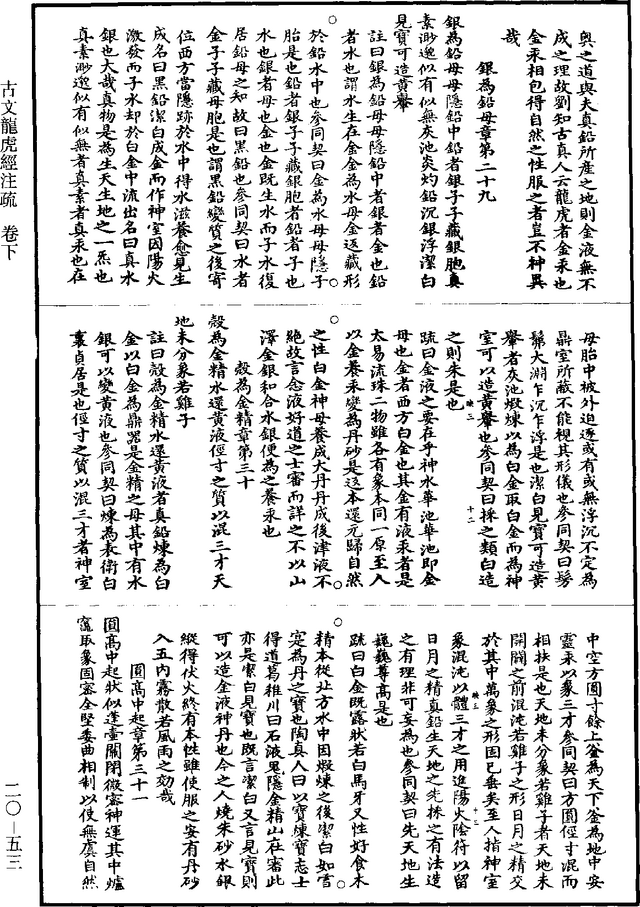 古文龍虎經注疏　卷下
二〇—五三
奧之道與夫真鉛所產之地則金液無不
成之理故劉知古真人云龍虎者金汞也
金汞相包得自然之性服之者豈不神異
哉
銀為鉛母章第二十九
銀為鉛母母隱鉛中鉛者銀子子藏銀胞真
素渺邈似有似無灰池炎灼鉛沉銀浮潔白
見寶可造黃轝
註曰銀為鉛母母隱鉛中者銀者金也鉛
者水也謂水生在金金為水母金返藏形
於鉛水中也參同契曰金為水母母隱子
胎是也鉛者銀子子藏銀胞者鉛者子也
水也銀者母也金也金既生水而子水復
居鉛母之知故曰黑鉛也參同契曰水者
金子子藏母胞是也謂黑鉛變質之後寄
位西方當隱跡於水中得水滋養愈見生
成名曰黑鉛潔白成金而作神室因陽火
激發而子水却於白金中流出名曰真水
銀也大哉真物是為生天生地之一炁也
真素渺邈似有似無者真素者真汞也在
母胎中被外迫逐或有或無浮沉不定為
鼎室所蔽不能視其形儀也參同契曰髣
髴大淵乍沉乍浮是也潔白見寶可造黃
轝者灰池煅煉以為白金取白金而為神
室可以造黃轝也參同契曰採之類白造
之則朱是也
疏曰金液之要在乎神水華池華池即金
母也金者西方白金也其金有液汞者是
太易流珠二物雖各有象本同一原至人
以金養汞變為丹砂是返本還元歸自然
之性白金神母養成大丹丹成後津液不
絕故言愈液好道之士審而詳之不以山
澤金銀和合水銀便為之養汞也
殼為金精章第三十
殼為金精水還黃液徑寸之質以混三才天
地未分象若雞子
註曰殼為金精水還黃液者真鉛煉為白
金以白金為鼎器是金精之母其中有水
銀可以變黃液也參同契曰煉為表衛白
裏貞居是也徑寸之質以混三才者神室
中空方圓寸餘上釜為天下釜為地中安
靈汞以象三才參同契曰方圓徑寸混而
相扶是也天地未分象若雞子者天地未
開闢之前混沌若雞子之形日月之精交
於其中萬象之形因已垂矣至人指神室
象混沌以體三才之用進陽火陰符以留
日月之精真鉛生天地之先採之有法造
之有理非可妄為也參同契曰先天地生
巍巍尊高是也
疏曰白金既露狀若白馬牙又性好食木
精本從北方水中因煅煉之後潔白如雪
寔為丹之寶也陶真人曰以寶煉寶志士
得道葛稚川曰石液鬼隱金精山在審此
亦是潔白見寶也既言潔白又言見寶則
可以造金液神丹也今之人燒朱砂水銀
縱得伏火終有本性雖使服之安有丹砂
入五內霧散若風雨之効哉
圓高中起章第三十一
圓高中起狀似蓬壺關閉微密神運其中爐
竈取象固密全堅委曲相制以使無虞自然